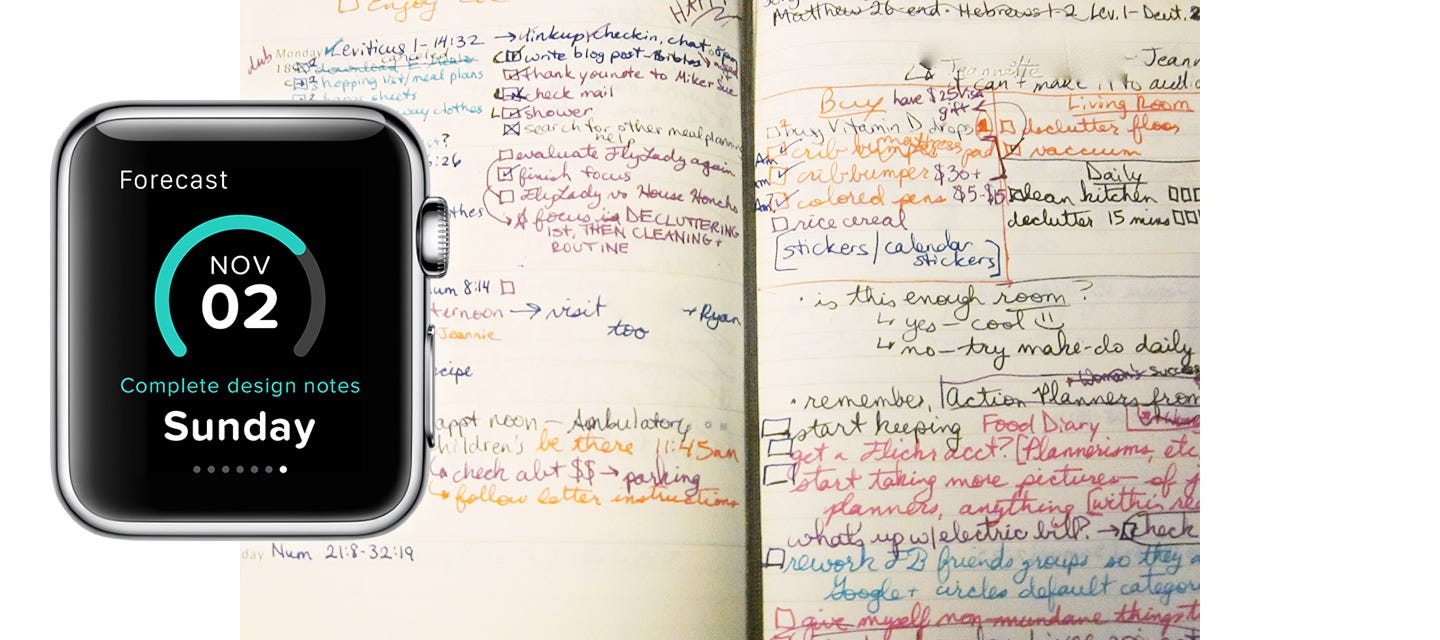 Forecast
NOV
02
Complete design notes
Sunday
enjoy
HAPPY
dub
Monday Leviticus 1-14:32 → linkup/checkin, chat, open
18 canceled
shopping list/meal plans
sheets
way clothes
write blog post - Bibles
thank you note to Mike + Sue
check mail
shower
search for other meal planning
help
evaluate FlyLady again
finish focus
FlyLady vs House Honcho
focus is DECLUTTERING
1st, THEN CLEANING +
ROUTINE
?
:26
thes
um 8:14
ternoon → visit → Ryan
too
Jeannie
ecipe
appt noon - Ambulatory
hildren's be there 11:45am
check abt $$ → parking
follow letter instructions
day Num 21:8-32:19
Matthew 26-end · Hebrews 1-2 Lev. 1- Deut. 2
Jeannette - Jeann
can + make it to audi
Buy have $25 visa
gift
buy Vitamin D drops
mattress
crib bumper pad
crib bumper $30+
colored pens $5-$15
rice cereal
[stickers/calendar
stickers]
Living Room
declutter floor
vaccuum
Daily
clean kitchen
declutter 15 mins
· is this enough room?
↳ yes - cool
↳ no - try make-do daily
Woman's success
· remember, Action Planners from
start keeping Food Diary
get a Flickr acct? [Plannerisms, etc
start taking more pictures of
planners, anything [within rea
what's up w/electric bill? → check
rework FB friends groups so they
Google+ circles default categor
give myself non-mundane things t